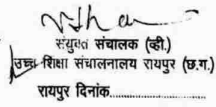 संयुक्त संचालक (व्ही.)
उच्च शिक्षा संचालनालय रायपुर (छ.ग.)
रायपुर दिनांक........................